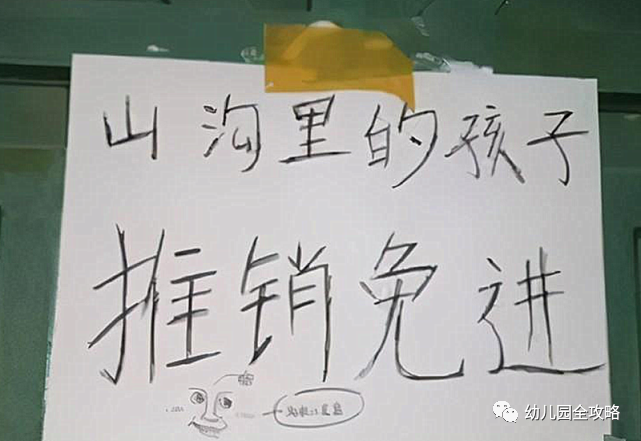 山沟里的孩子
推销免进
幼儿园全攻略